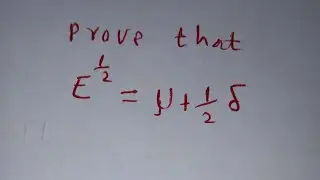 prove that
E^{1/2} = μ + 1/2 δ